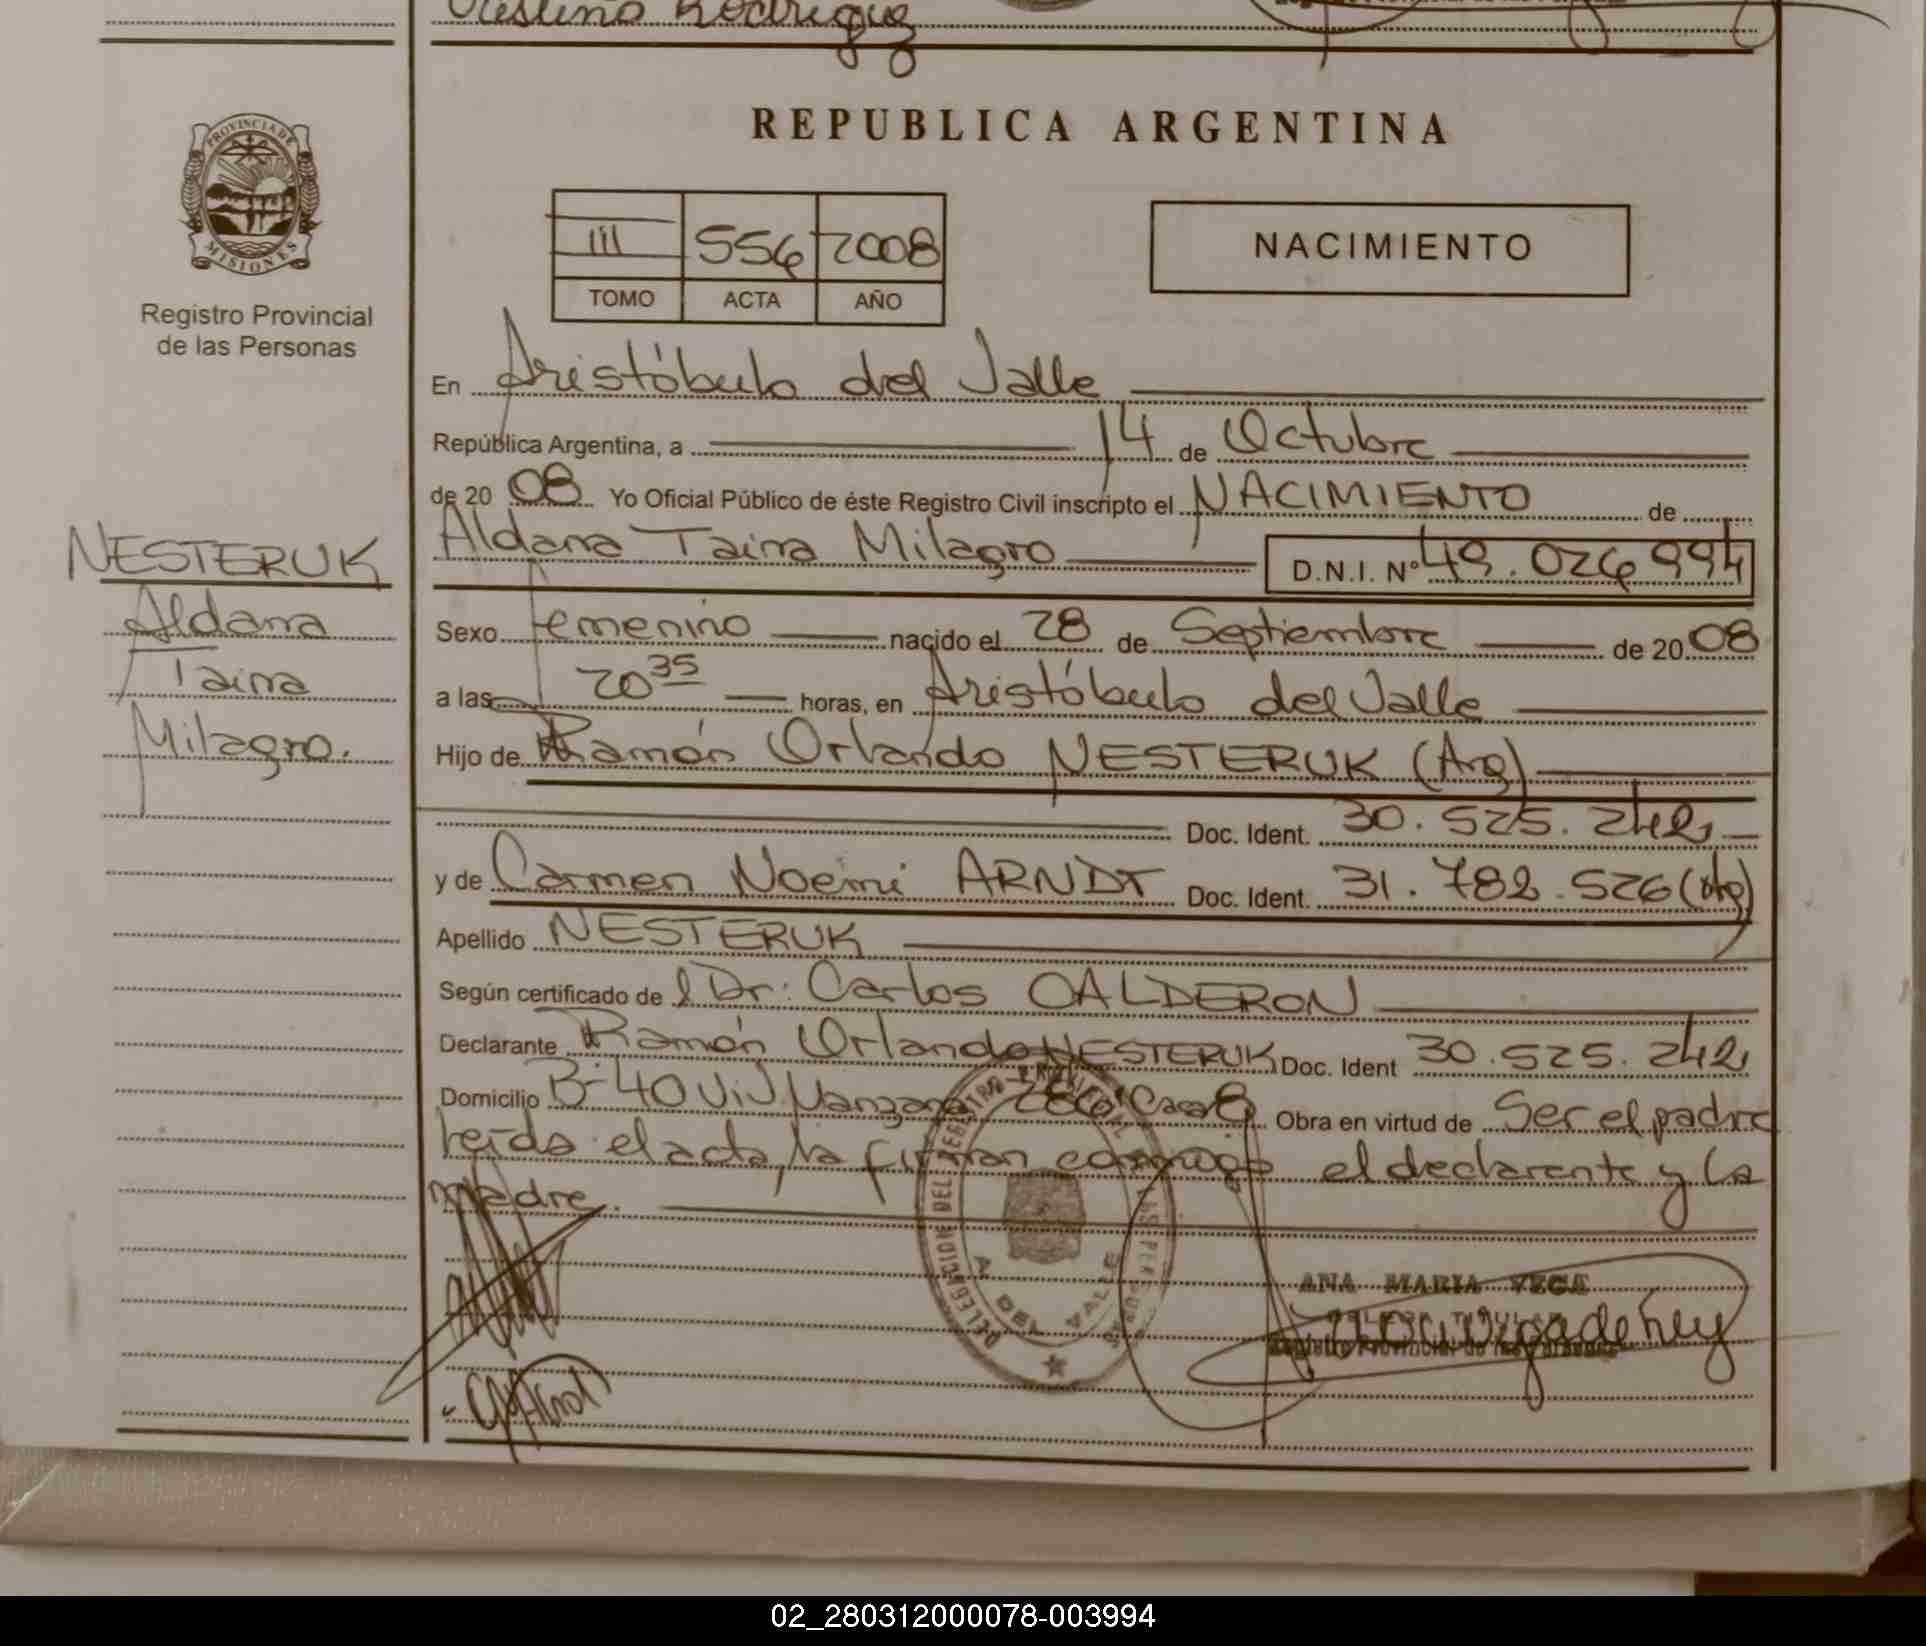 Rodriguez
PROVINCIA DE
MISIONES
Registro Provincial
de las Personas
REPUBLICA ARGENTINA
III 556 2008
TOMO ACTA AÑO
NACIMIENTO
En Aristóbulo del Valle
República Argentina, a 14 de Octubre
de 20 08 Yo Oficial Público de éste Registro Civil inscripto el NACIMIENTO de
Aldana Taina Milagro D.N.I. Nº 49.026994
NESTERUK
Aldana
Taina
Milagro.
Sexo femenino nacido el 28 de Septiembre de 20 08
a las 20 35 horas, en Aristóbulo del Valle
Hijo de Ramón Orlando NESTERUK (Arg)
Doc. Ident. 30.525.242
y de Carmen Noemi ARNDT Doc. Ident. 31.782.526 (Arg)
Apellido NESTERUK
Según certificado de l Dr: Carlos CALDERON
Declarante Ramón Orlando NESTERUK Doc. Ident 30.525.242
Domicilio B-40 ViV. Manzana Casa 8 Obra en virtud de Ser el padre
leída el acta, la firman conmigo el declarante y la
madre.
ANA MARIA VEGA
Registro Provincial de las Personas
02_280312000078-003994